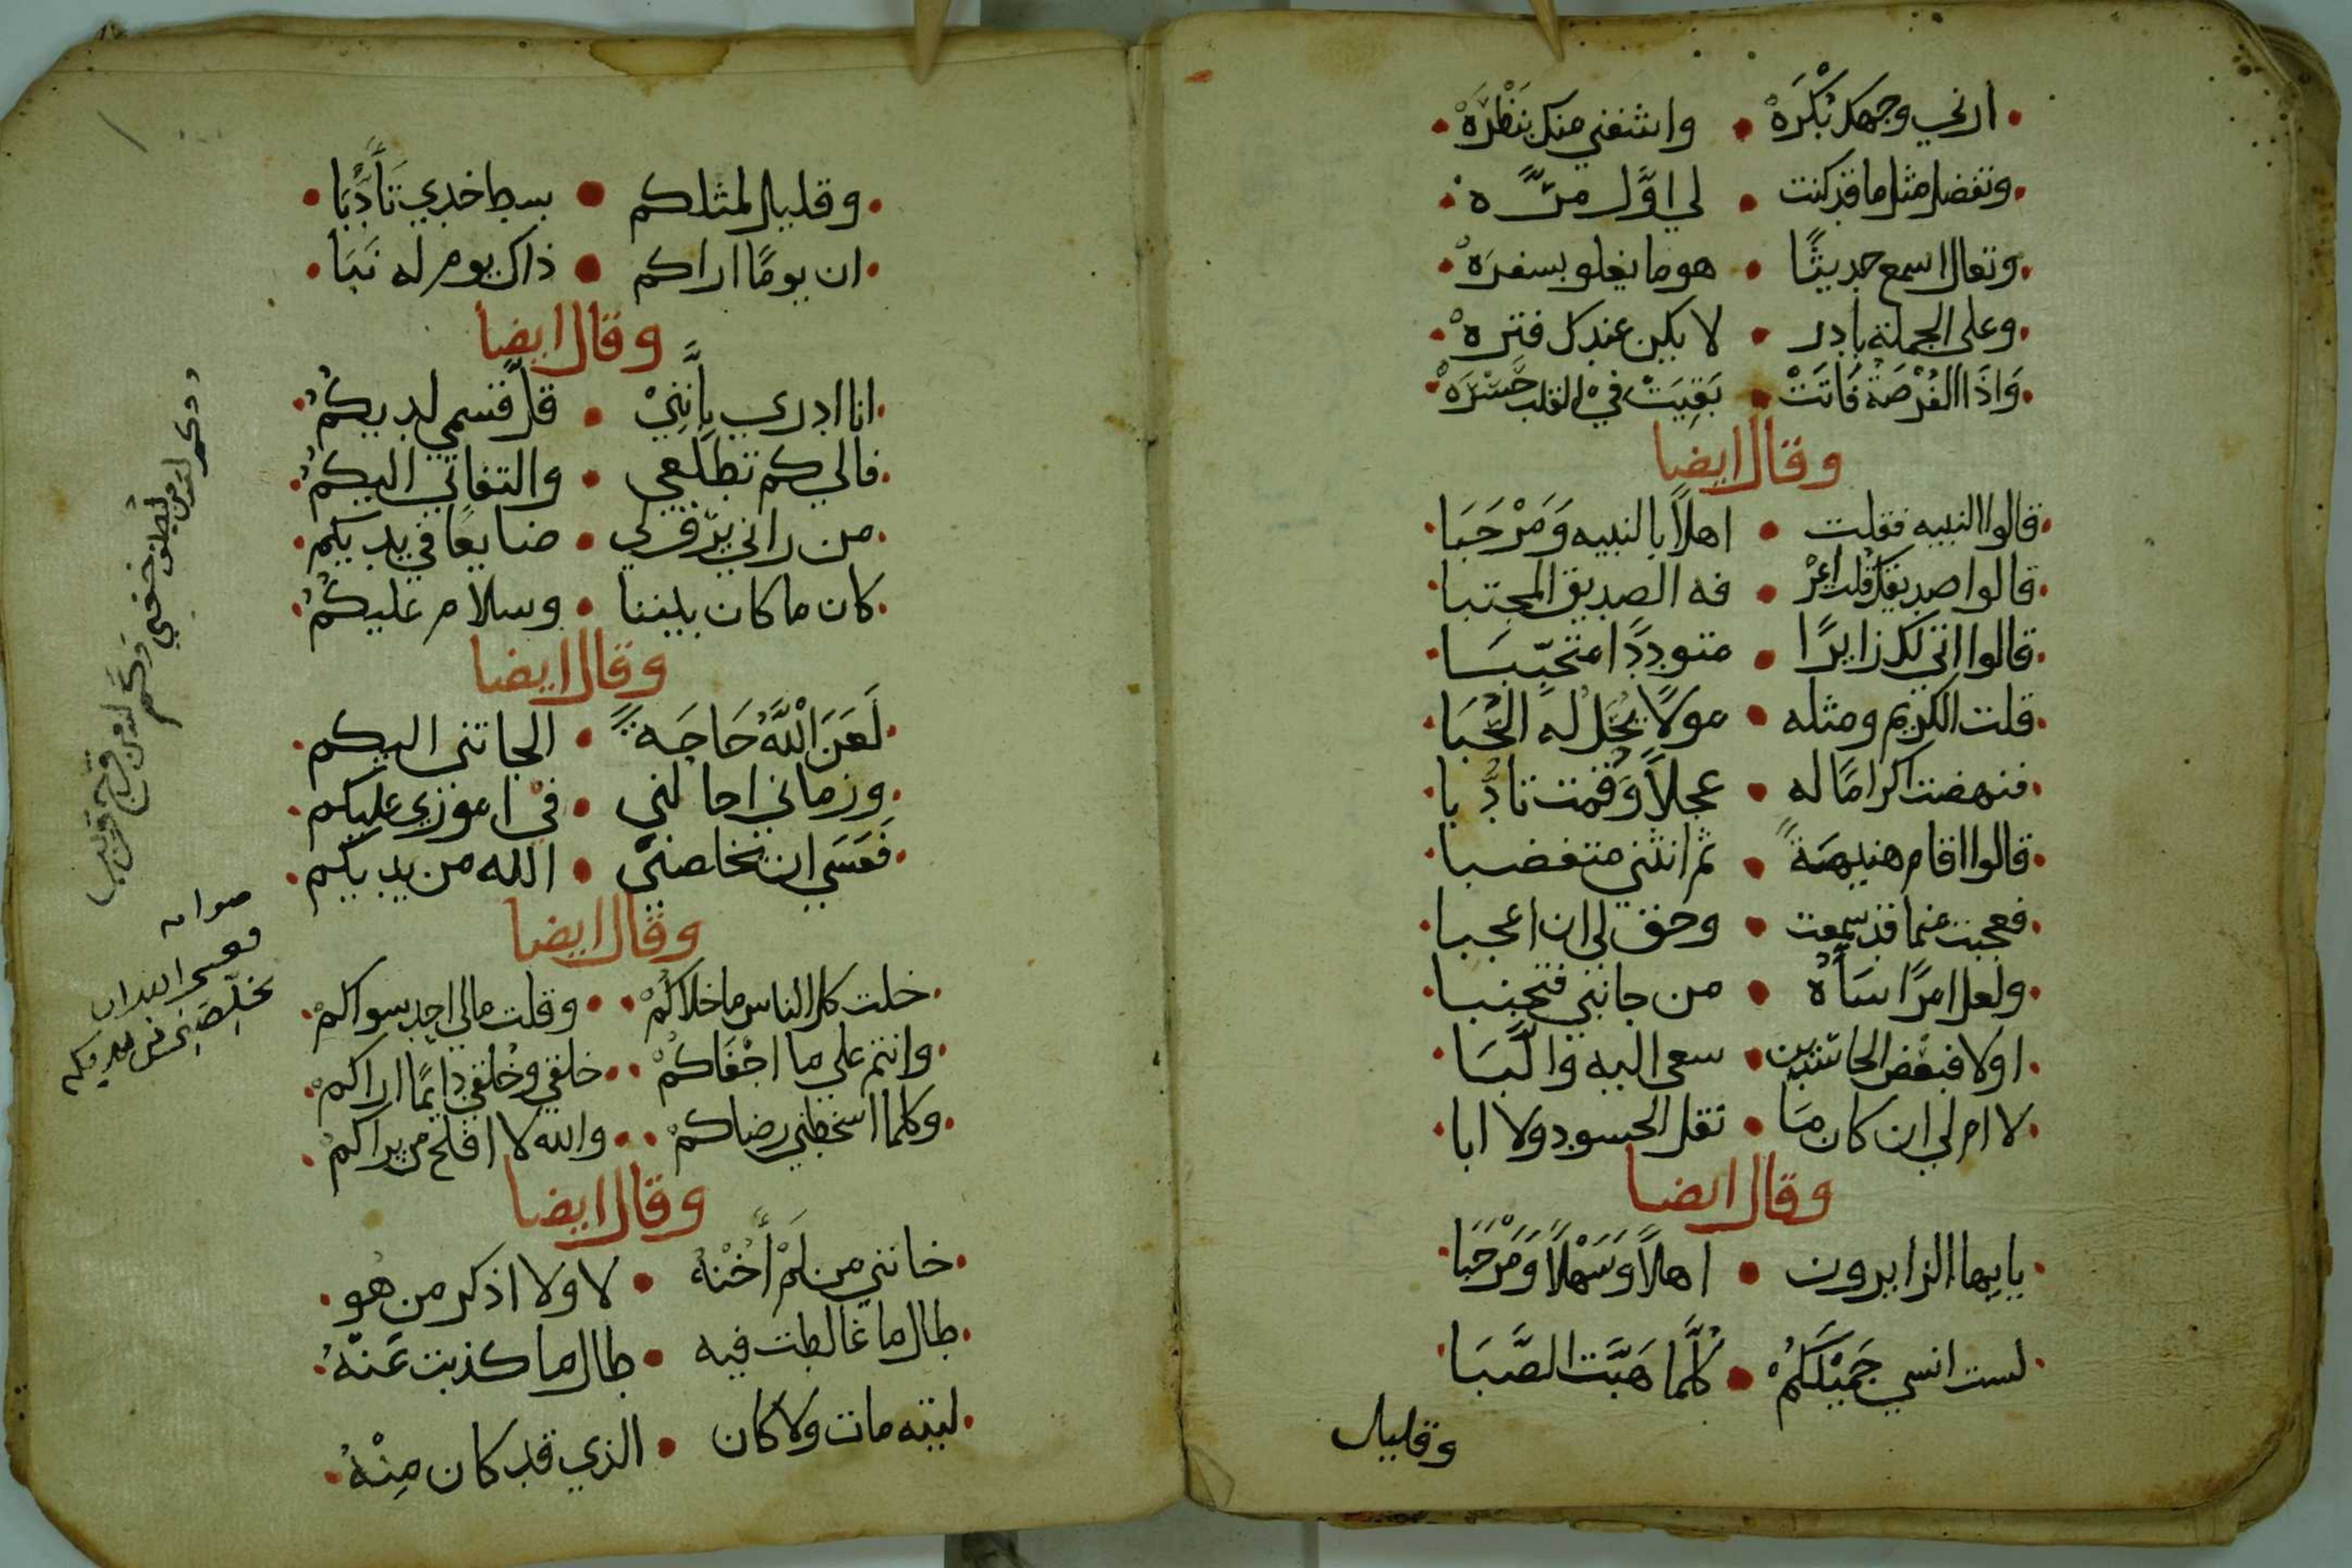 ارني وجهك بُكْرَهْ • واشفني منك بنَظْرَهْ
وتفضل مثل ما قد كنت • لي اوَّل مرّه
وتعال اسمع حديثًا • هو ما يغلو بسفرَهْ
وعلى الجملة بادر • لا يكن عندك فتره
وَاذَا الفُرْصَةُ فَاتَتْ • بَقِيَتْ في القلب حَسْرَهْ
وقال ايضا
قالوا النبيه فقلت • اهلاً بالنبيه وَمَرْحَبَا
قالوا صديقك قلت اعْرْ • فه الصديق المجتبا
قالوا اتى لك زايرًا • متوددًا متحبّبَا
قلت الكريم ومثله • مولًا يُحَل لهُ الحُبَا
فنهضت اكرامًا له • عجلاً وَقمت تادُّبا
قالوا اقام هنيهةً • ثم انثنى متغضبا
فعجبت عنما قد سمعت • وحق لي ان اعجبا
ولعل امرًا سَأَهُ • من جانبي فتجنبا
اولا فبعض الحاسدين • سعى اليه والّبَا
لا ام لي ان كان مَا • نقل الحسود ولا ابا
وقال ايضا
يايها الزايرون • اهلاً وَسَهْلاً وَمَرْحَبًا
لست انسى جَمَيْلَكُمْ • كُلَّمَا هَبَّت الصَّبَا
وقليل
وقليل لمثلكم • بسط خدي تَأَدُّبَا
ان يومًا اراكم • ذاك يوم له نَبَا
وقال ايضا
انا ادري بِأَنَّنِيْ • قلّ قسمي لديكُمُ
فالي كم تطلّعي • والتفاتي اليكُمُ
من راني يرّق لي • ضايعًا في يديكم
كان ما كان بيننا • وسلام عليكُمُ
وقال ايضا
لَعَنَ اللَّهُ حَاجَةً • الجاتني اليكم
وزماني احالني • في اموري عليكم
فَعَسَي ان يخلصني • الله من يديكم
وقال ايضا
خلت كل الناس ما خلاكُمْ • وقلت مالي احد سواكمْ
وانتم علي ما اجْفَاكُمْ • خلقي وخُلقي دايمًا اراكمْ
وكلما اسخطني رضاكمْ • والله لا افلح من يراكمْ
وقال ايضا
خانني من لَمْ أَخُنْهُ • لا ولا اذكر من هُو
طال ما غالطت فيه • طال ما كذبت عَنْهُ
ليته مات ولا كان • الذي قد كان مِنْهُ
وكم لله من لطف خفي
وكم لله من فرج قريب
صوابه
فعسى الله ان
يخلّصني من يديكم